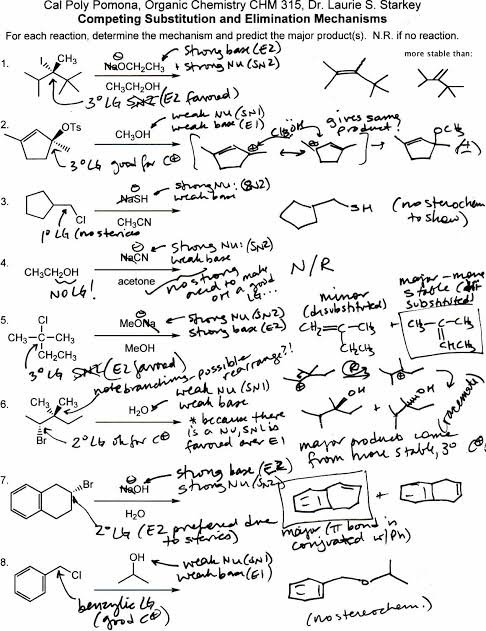 Cal Poly Pomona, Organic Chemistry CHM 315, Dr. Laurie S. Starkey
Competing Substitution and Elimination Mechanisms
For each reaction, determine the mechanism and predict the major product(s). N.R. if no reaction.
1.
I
CH3
⊖
NaOCH2CH3
strong base (E2)
+ strong NU (SN2)
CH3CH2OH
3° LG SN2 (E2 favored)
more stable than:
2.
OTs
CH3OH
weak NU (SN1)
weak base (E1)
3° LG good for C⊕
CH3OH
gives same product!
OCH3
(±)
3.
Cl
1° LG (no sterics)
⊖
NaSH
strong NU: (SN2)
weak base
CH3CN
SH
(no stereochem to show)
4.
CH3CH2OH
NO LG!
⊖
NaCN
strong NU: (SN2)
weak base
acetone
no strong acid to make OH a good LG...
N/R
5.
Cl
CH3-C-CH3
CH2CH3
3° LG SN2 (E2 favored)
⊖
MeONa
strong NU (SN2)
strong base (E2)
MeOH
minor (disubstituted)
CH2=C-CH3
CH2CH3
major - more stable (substituted)
CH3-C-CH3
CHCH3
note branching, possible rearrange?!
6.
CH3
CH3
Br
2° LG ok for C⊕
H2O
weak NU (SN1)
weak base
* because there is a NU, SN1 is favored over E1
OH
+
OH
(racemate)
major products come from more stable, 3° C⊕
7.
Br
2° LG (E2 preferred due to sterics)
⊖
NaOH
strong base (E2)
strong NU (SN2)
H2O
+
major (π bond is conjugated w/Ph)
8.
Cl
benzylic LG (good C⊕)
OH
weak NU (SN1)
weak base (E1)
O
(no stereochem.)